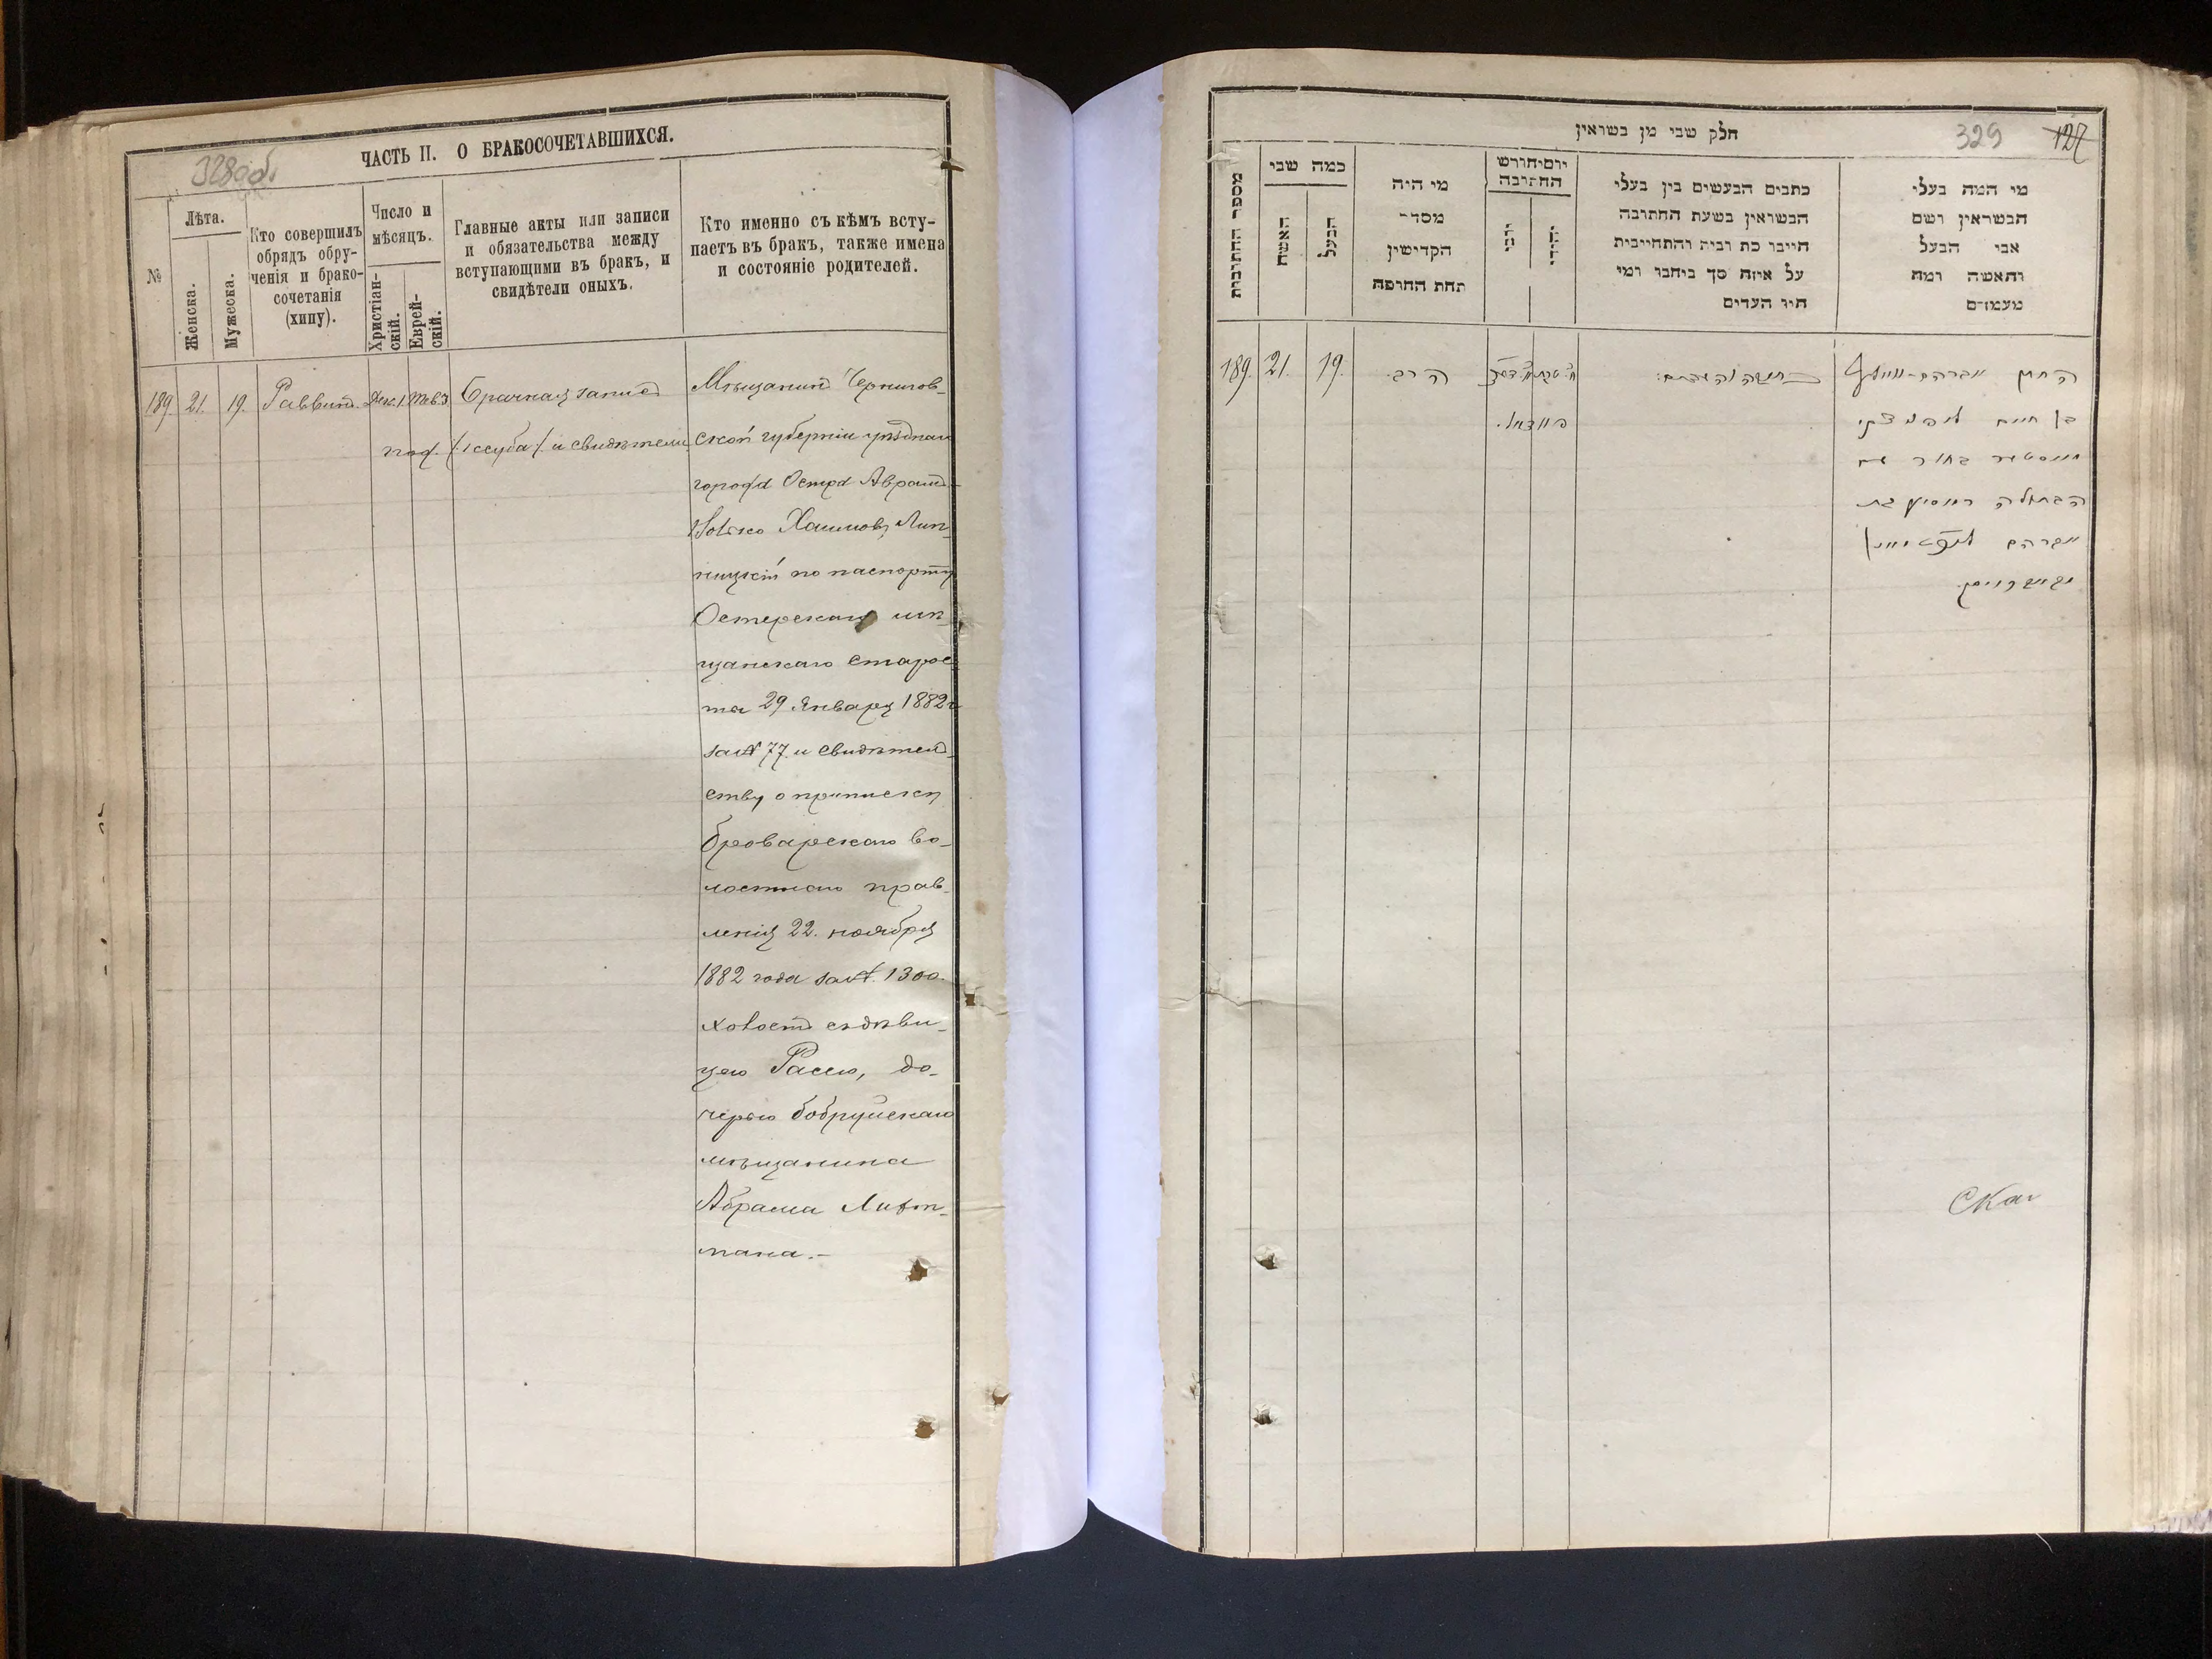 328об.
ЧАСТЬ II. О БРАКОСОЧЕТАВШИХСЯ.
№
Лѣта.
Женска.
Мужеска.
Кто совершилъ
обрядъ обру-
ченія и брако-
сочетанія
(хипу).
Число и
мѣсяцъ.
Христіан-
скій.
Еврей-
скій.
Главные акты или записи
и обязательства между
вступающими въ бракъ, и
свидѣтели оныхъ.
Кто именно съ кѣмъ всту-
паетъ въ бракъ, также имена
и состояніе родителей.
189. 21. 19. Раввинъ. Дек. 1 Тев. 3 Брачная запись
/:ксуба:/ и свидѣтели
Мѣщанинъ Чернигов-
ской губерніи уѣзднаго
города Остра Аврамъ-
Волько Хаимовъ Лип-
ницкій по паспорту
Остерскаго мѣ-
щанскаго старос-
ты 29 Января 1882 г
за № 77. и свидѣтель-
ству о припискѣ
броварскаго во-
лостнаго прав-
ленія 22. ноября
1882 года за № 1300.
холостъ съ дѣви-
цею Расею, до-
черью бобруйскаго
мѣщанина
Абрама Лифт-
мана.-
329 127
חלק שבי מן בשראין
מספר החתובות
כמה שבי
האשה
הבעל
מי היה
מסדר
הקדישין
תחת החופה
יום וחורש
החתובה
כתבים הבעשים בין בעלי
הבשראין בשעת החתובה
חייבו כת רביה והתחייבית
על איזה סך ביחבו ומי
חיו העדים
מי המה בעלי
הבשראין ושם
אבי הבעל
והאשה ומה
מעמדם
189. 21. 19. הרב.
החתן אברהם-וואלף
בן חיים ליפניצקי
בחור עם
הבתולה ראסיע בת
אברהם ליפטמאן